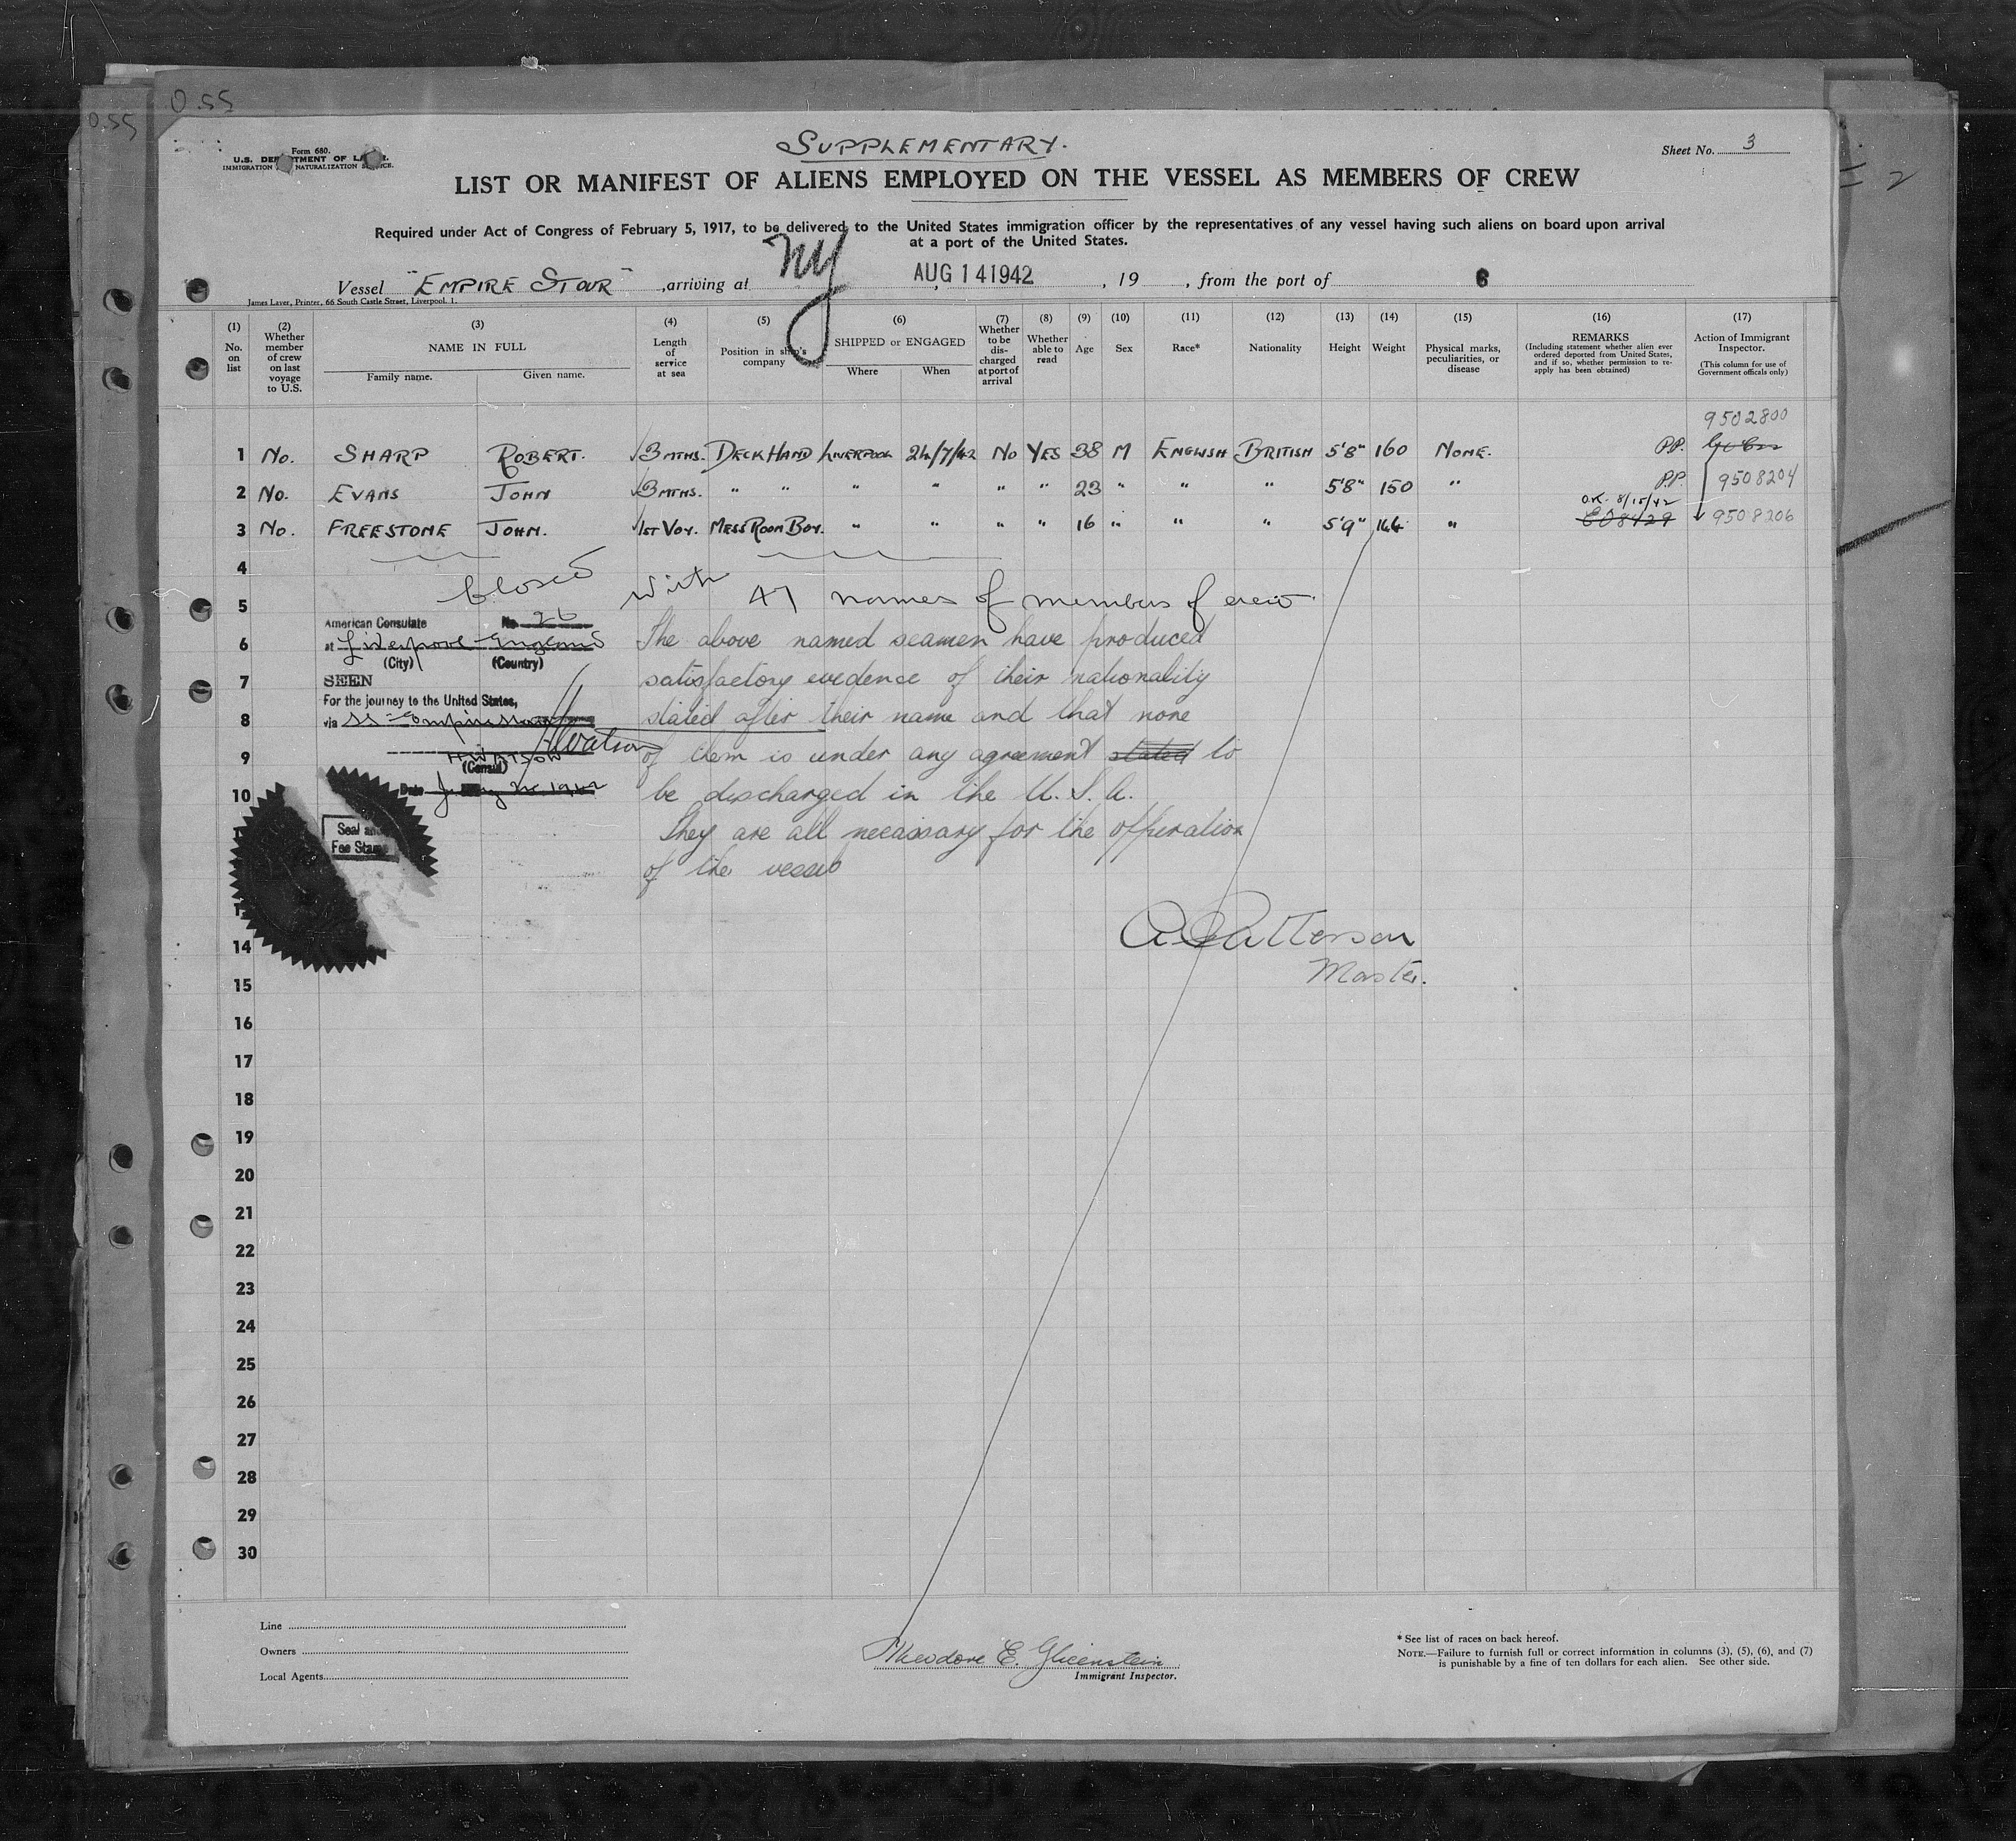 0.55
0.55
Form 680.
U.S. DEPARTMENT OF LABOR.
IMMIGRATION NATURALIZATION SERVICE.
SUPPLEMENTARY.
Sheet No. 3
2
LIST OR MANIFEST OF ALIENS EMPLOYED ON THE VESSEL AS MEMBERS OF CREW
Required under Act of Congress of February 5, 1917, to be delivered to the United States immigration officer by the representatives of any vessel having such aliens on board upon arrival
at a port of the United States.
Vessel "EMPIRE STOUR" , arriving at NY , AUG 14 1942 , 19 , from the port of 6
James Laver, Printer, 66 South Castle Street, Liverpool. 1.
(1) No. on list
(2) Whether member of crew on last voyage to U.S.
(3) NAME IN FULL Family name. Given name.
(4) Length of service at sea
(5) Position in ship's company
(6) SHIPPED or ENGAGED Where When
(7) Whether to be dis-charged at port of arrival
(8) Whether able to read
(9) Age
(10) Sex
(11) Race*
(12) Nationality
(13) Height
(14) Weight
(15) Physical marks, peculiarities, or disease
(16) REMARKS (Including statement whether alien ever ordered deported from United States, and if so, whether permission to re-apply has been obtained)
(17) Action of Immigrant Inspector. (This column for use of Government officials only)
9502800
1 No. SHARP ROBERT. 3 MTHS. DECK HAND LIVERPOOL 24/7/42 No YES 38 M ENGLISH BRITISH 5'8" 160 NONE. P.P.
2 No. EVANS JOHN 3 MTHS. " " " " " " 23 " " " 5'8" 150 " P.P. 9508204
O.K. 8/15/42
3 No. FREESTONE JOHN. 1ST VOY. MESS ROOM BOY. " " " " 16 " " " 5'9" 144 " 9508206
4
Closed with 47 names of members of crew.
5
American Consulate No. 26
6 at Liverpool England
(City) (Country)
The above named seamen have produced
7 SEEN
satisfactory evidence of their nationality
For the journey to the United States,
8 via SS Empire Stour
stated after their name and that none
HWatson
9 H. WATSON
(Consul)
of them is under any agreement stated to
10 Date July 25 1942
be discharged in the U.S.A.
Seal and
Fee Stamp
They are all necaissary for the opperation
of the vessel
A Patterson
14
Master.
15
16
17
18
19
20
21
22
23
24
25
26
27
28
29
30
Line
Owners
Local Agents
Theodore E. Glicenstein
Immigrant Inspector.
* See list of races on back hereof.
NOTE.—Failure to furnish full or correct information in columns (3), (5), (6), and (7)
is punishable by a fine of ten dollars for each alien. See other side.